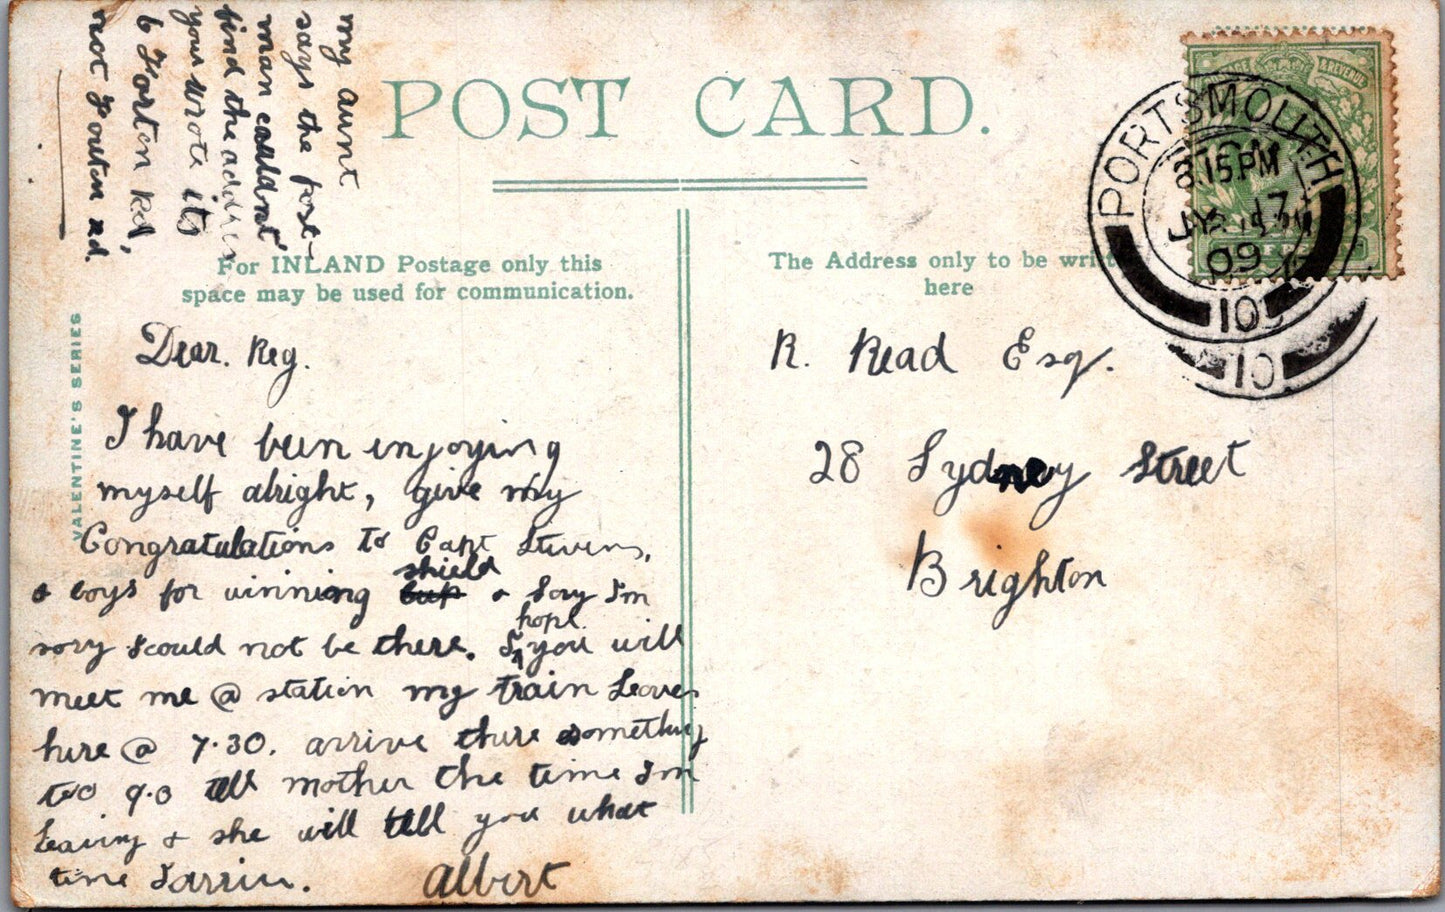 my aunt
says the post-
man couldnt
find the address
you wrote its
6 Forton Rd,
not Fouten Rd.
POST CARD.
For INLAND Postage only this
space may be used for communication.
The Address only to be writ
here
VALENTINE'S SERIES
POSTAGE & REVENUE
PORTSMOUTH
8.15 PM
JY 17
09
10
10
Dear. Reg.
I have been enjoying
myself alright, give my
Congratulations to Capt Stivens,
& boys for winning shield & Say I'm
sory I could not be there. I hope you will
meet me @ station my train Leaves
here @ 7.30. arrive there something
to 9.0 tell mother the time I'm
Leaving & she will tell you what
time I arrive.
Albert
R. Read Esq.
28 Sydney Street
Brighton